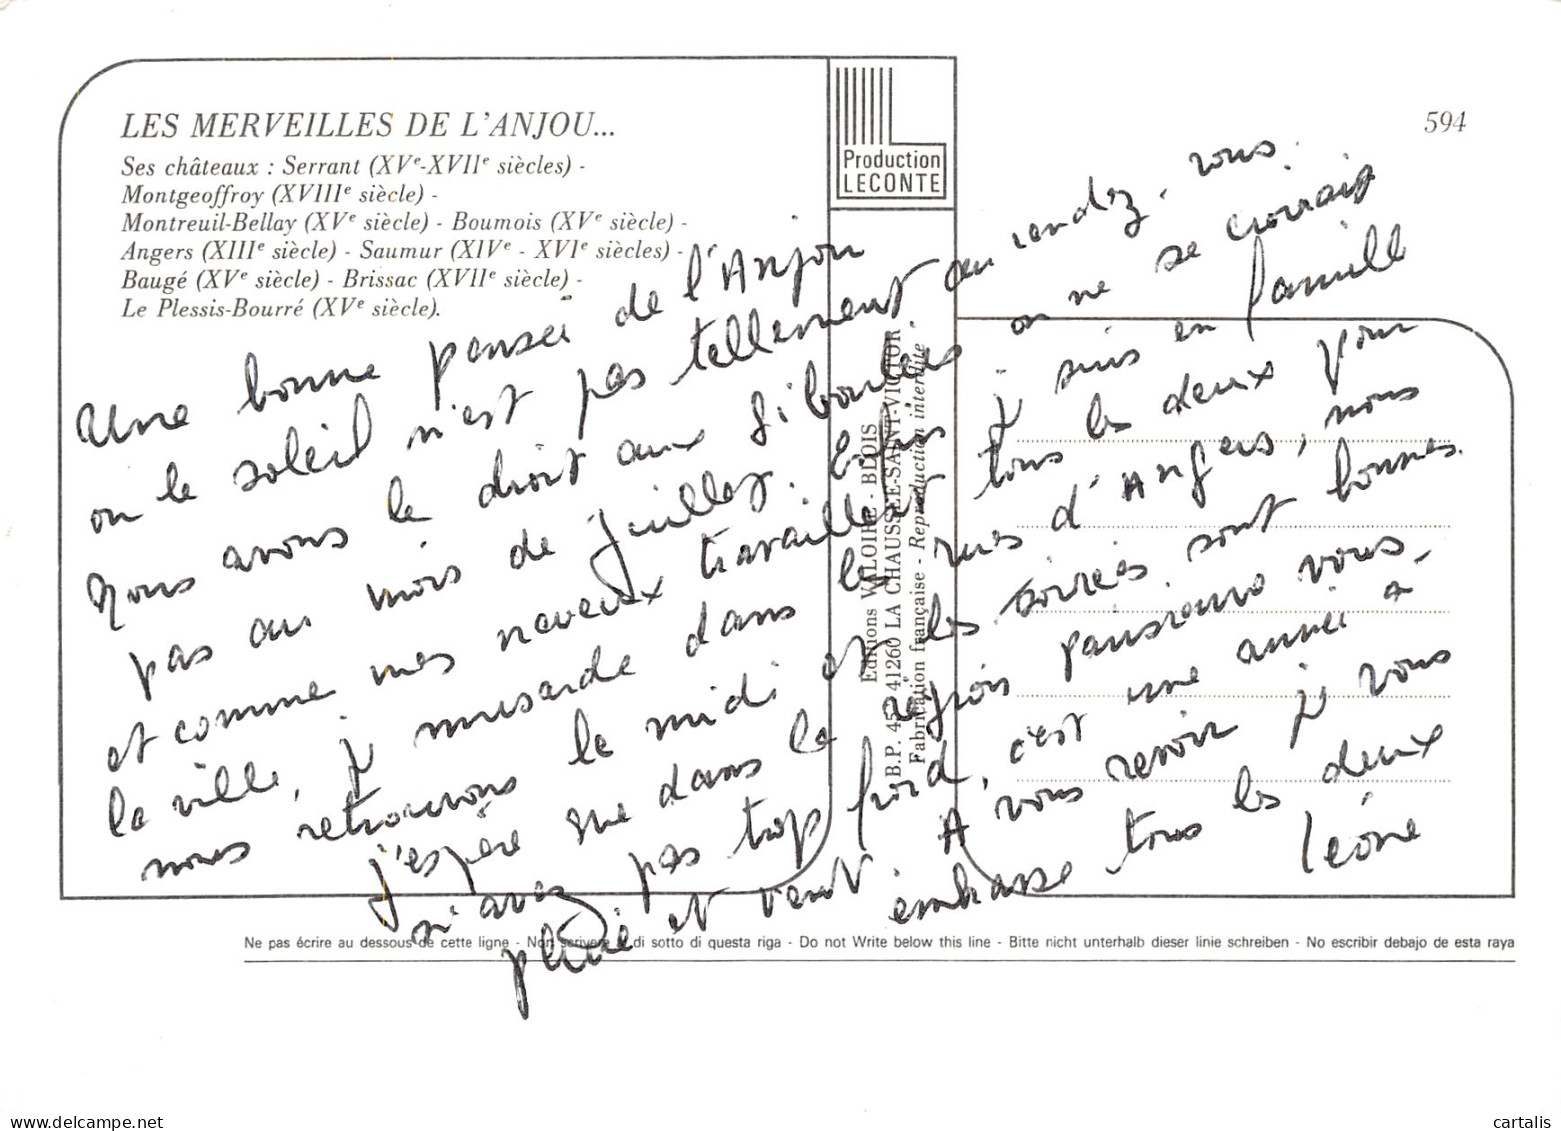 LES MERVEILLES DE L'ANJOU...
Ses châteaux : Serrant (XVe-XVIIe siècles) -
Montgeoffroy (XVIIIe siècle) -
Montreuil-Bellay (XVe siècle) - Boumois (XVe siècle) -
Angers (XIIIe siècle) - Saumur (XIVe - XVIe siècles) -
Baugé (XVe siècle) - Brissac (XVIIe siècle) -
Le Plessis-Bourré (XVe siècle).
Production
LECONTE
594
Une bonne pensée de l'Anjou
ou le soleil n'est pas tellement au rendez-vous.
Nous avons le droit aux giboulées on ne se croirait
pas au mois de juillet. Enfin je suis en famille
et comme mes neveux travaillent tous les deux pour
la ville, je musarde dans les rues d'Angers, nous
nous retrouvons le midi et les soirées sont bonnes.
J'espère que dans la région parisienne vous
n'avez pas trop froid, c'est une année à
pluie et vent A vous revoir je vous
embrasse tous les deux
Léone
Editions VALOIRE - BLOIS
B.P. 45 - 41260 LA CHAUSSÉE-SAINT-VICTOR
Fabrication française - Reproduction interdite -
Ne pas écrire au dessous de cette ligne - Non scrivere di sotto di questa riga - Do not Write below this line - Bitte nicht unterhalb dieser linie schreiben - No escribir debajo de esta raya
www.delcampe.net
cartalis